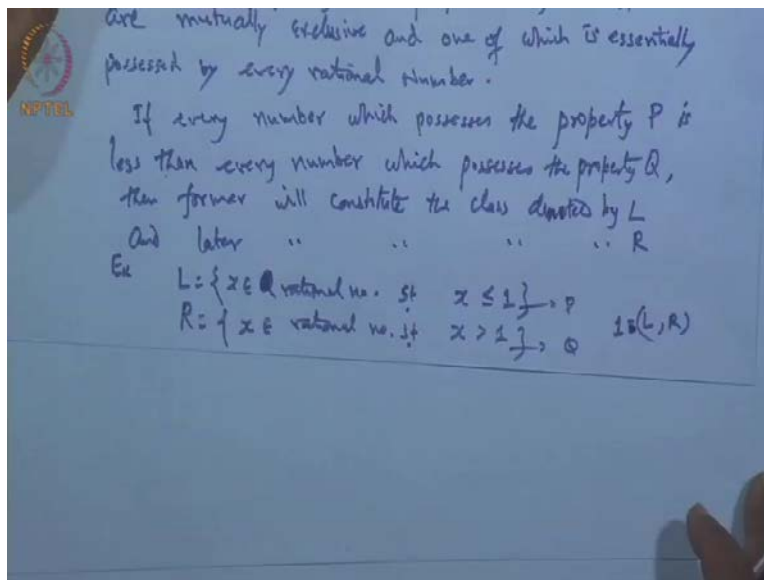 are mutually exclusive and one of which is essentially
possessed by every rational number.
NPTEL
If every number which possesses the property P is
less than every number which possesses the property Q,
then former will constitute the class denoted by L
And later " " " " R
Ex
L = { x ∈ rational no. st x ≤ 1 }, P
R = { x ∈ rational no. st x > 1 }, Q 1 = (L, R)